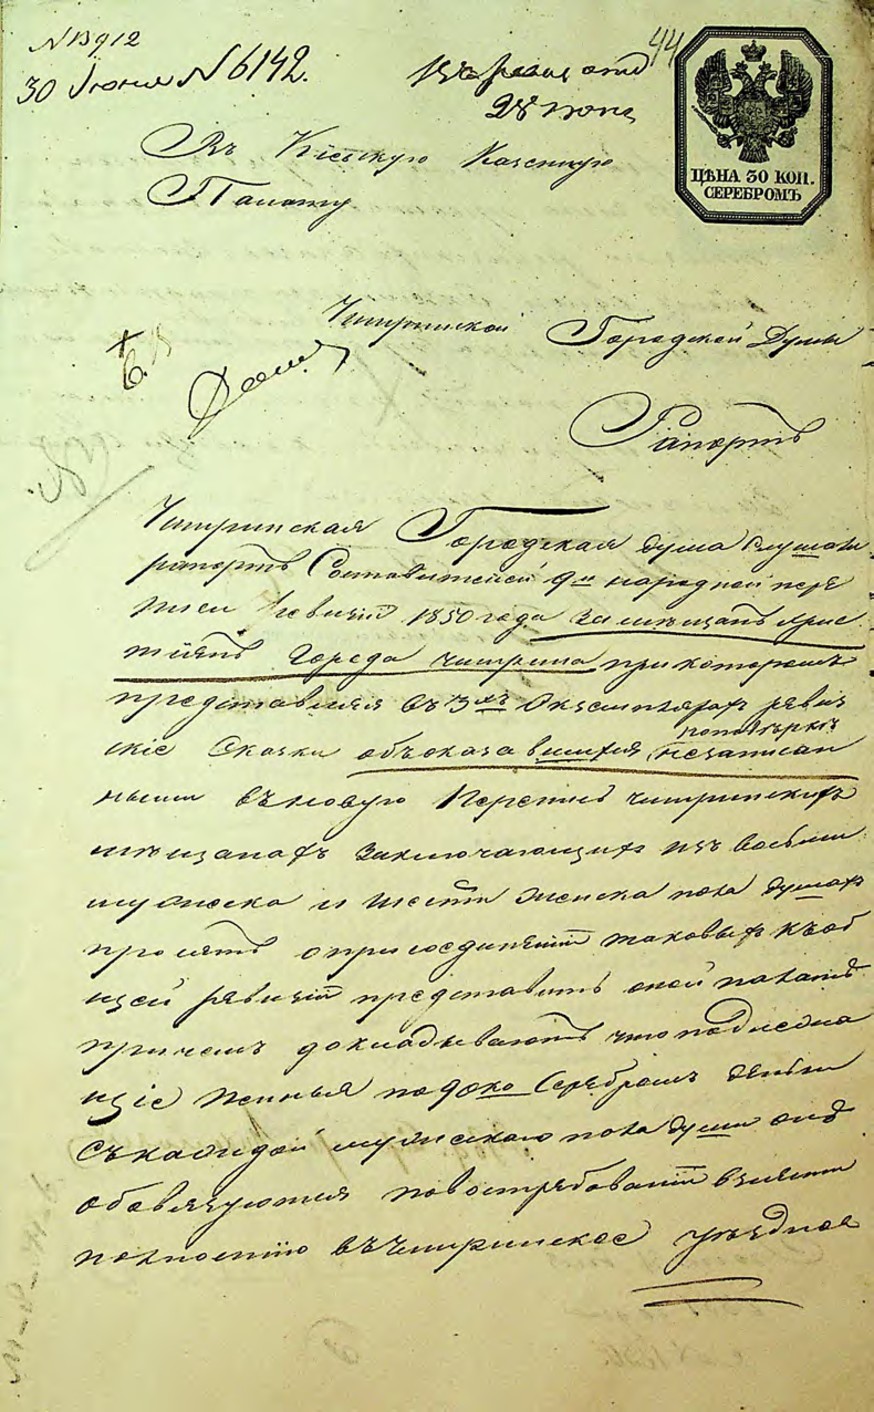 N 13912
30 Июня N 6142.
44
28 июня
ЦѢНА 30 КОП.
СЕРЕБРОМЪ
Въ Кіевскую Казенную
Палату
Чигринской Городской Думы
Рапортъ
Чигринская Городская дума слушали
рапортъ Составителей 9й народной пере
писи ревизіи 1850 года за мѣщанъ Хрис
тіянъ города Чигрина при которомъ
представляя въ 3хъ Экземплярахъ ревиз
скіе Сказки объоказавшихся поповѣркѣ незаписан
ными въновую Перепись чигринскихъ
мѣщанахъ заключающихъ изъ восьми
мужеска и шести женска пола душахъ
просятъ оприсоединеніи таковыхъ къоб
щей ревизіи представить оной палатѣ
причемъ докладываютъ что подлежа
щіе деньги
Съкаждой мужскаго пола души онѣ
обовязуются повостребованіи взнести
полностію въЧигринское уѣздное